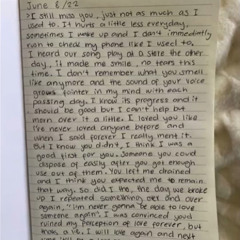 June 6/22
> I still miss you, just not as much as I
used to. It hurts a little less everyday,
sometimes I wake up and I don't immediantly
run to check my phone like I used to,
I heard our song play at a store the other
day, it made me smile, no tears this
time. I don't remember what you smell
like anymore and the sound of your voice
grows fainter in my mind with each
passing day. I know its progress and it
should be good but I can't help but
mourn over it a little. I loved you like
I've never loved anyone before and
when I said forever I really ment it.
But I know you didn't, I think I was a
good fist for you. Someone you could
dispose of easily after you got enough
use out of them. You left me changed
and I think you expected me to remain
that way. So did I tho, the day we broke
up I repeated something over and over
again, "im never gonna be able to love
someone again". I was convinced you
ruined my perception of love forever, but
thats a lie. I will love again and next